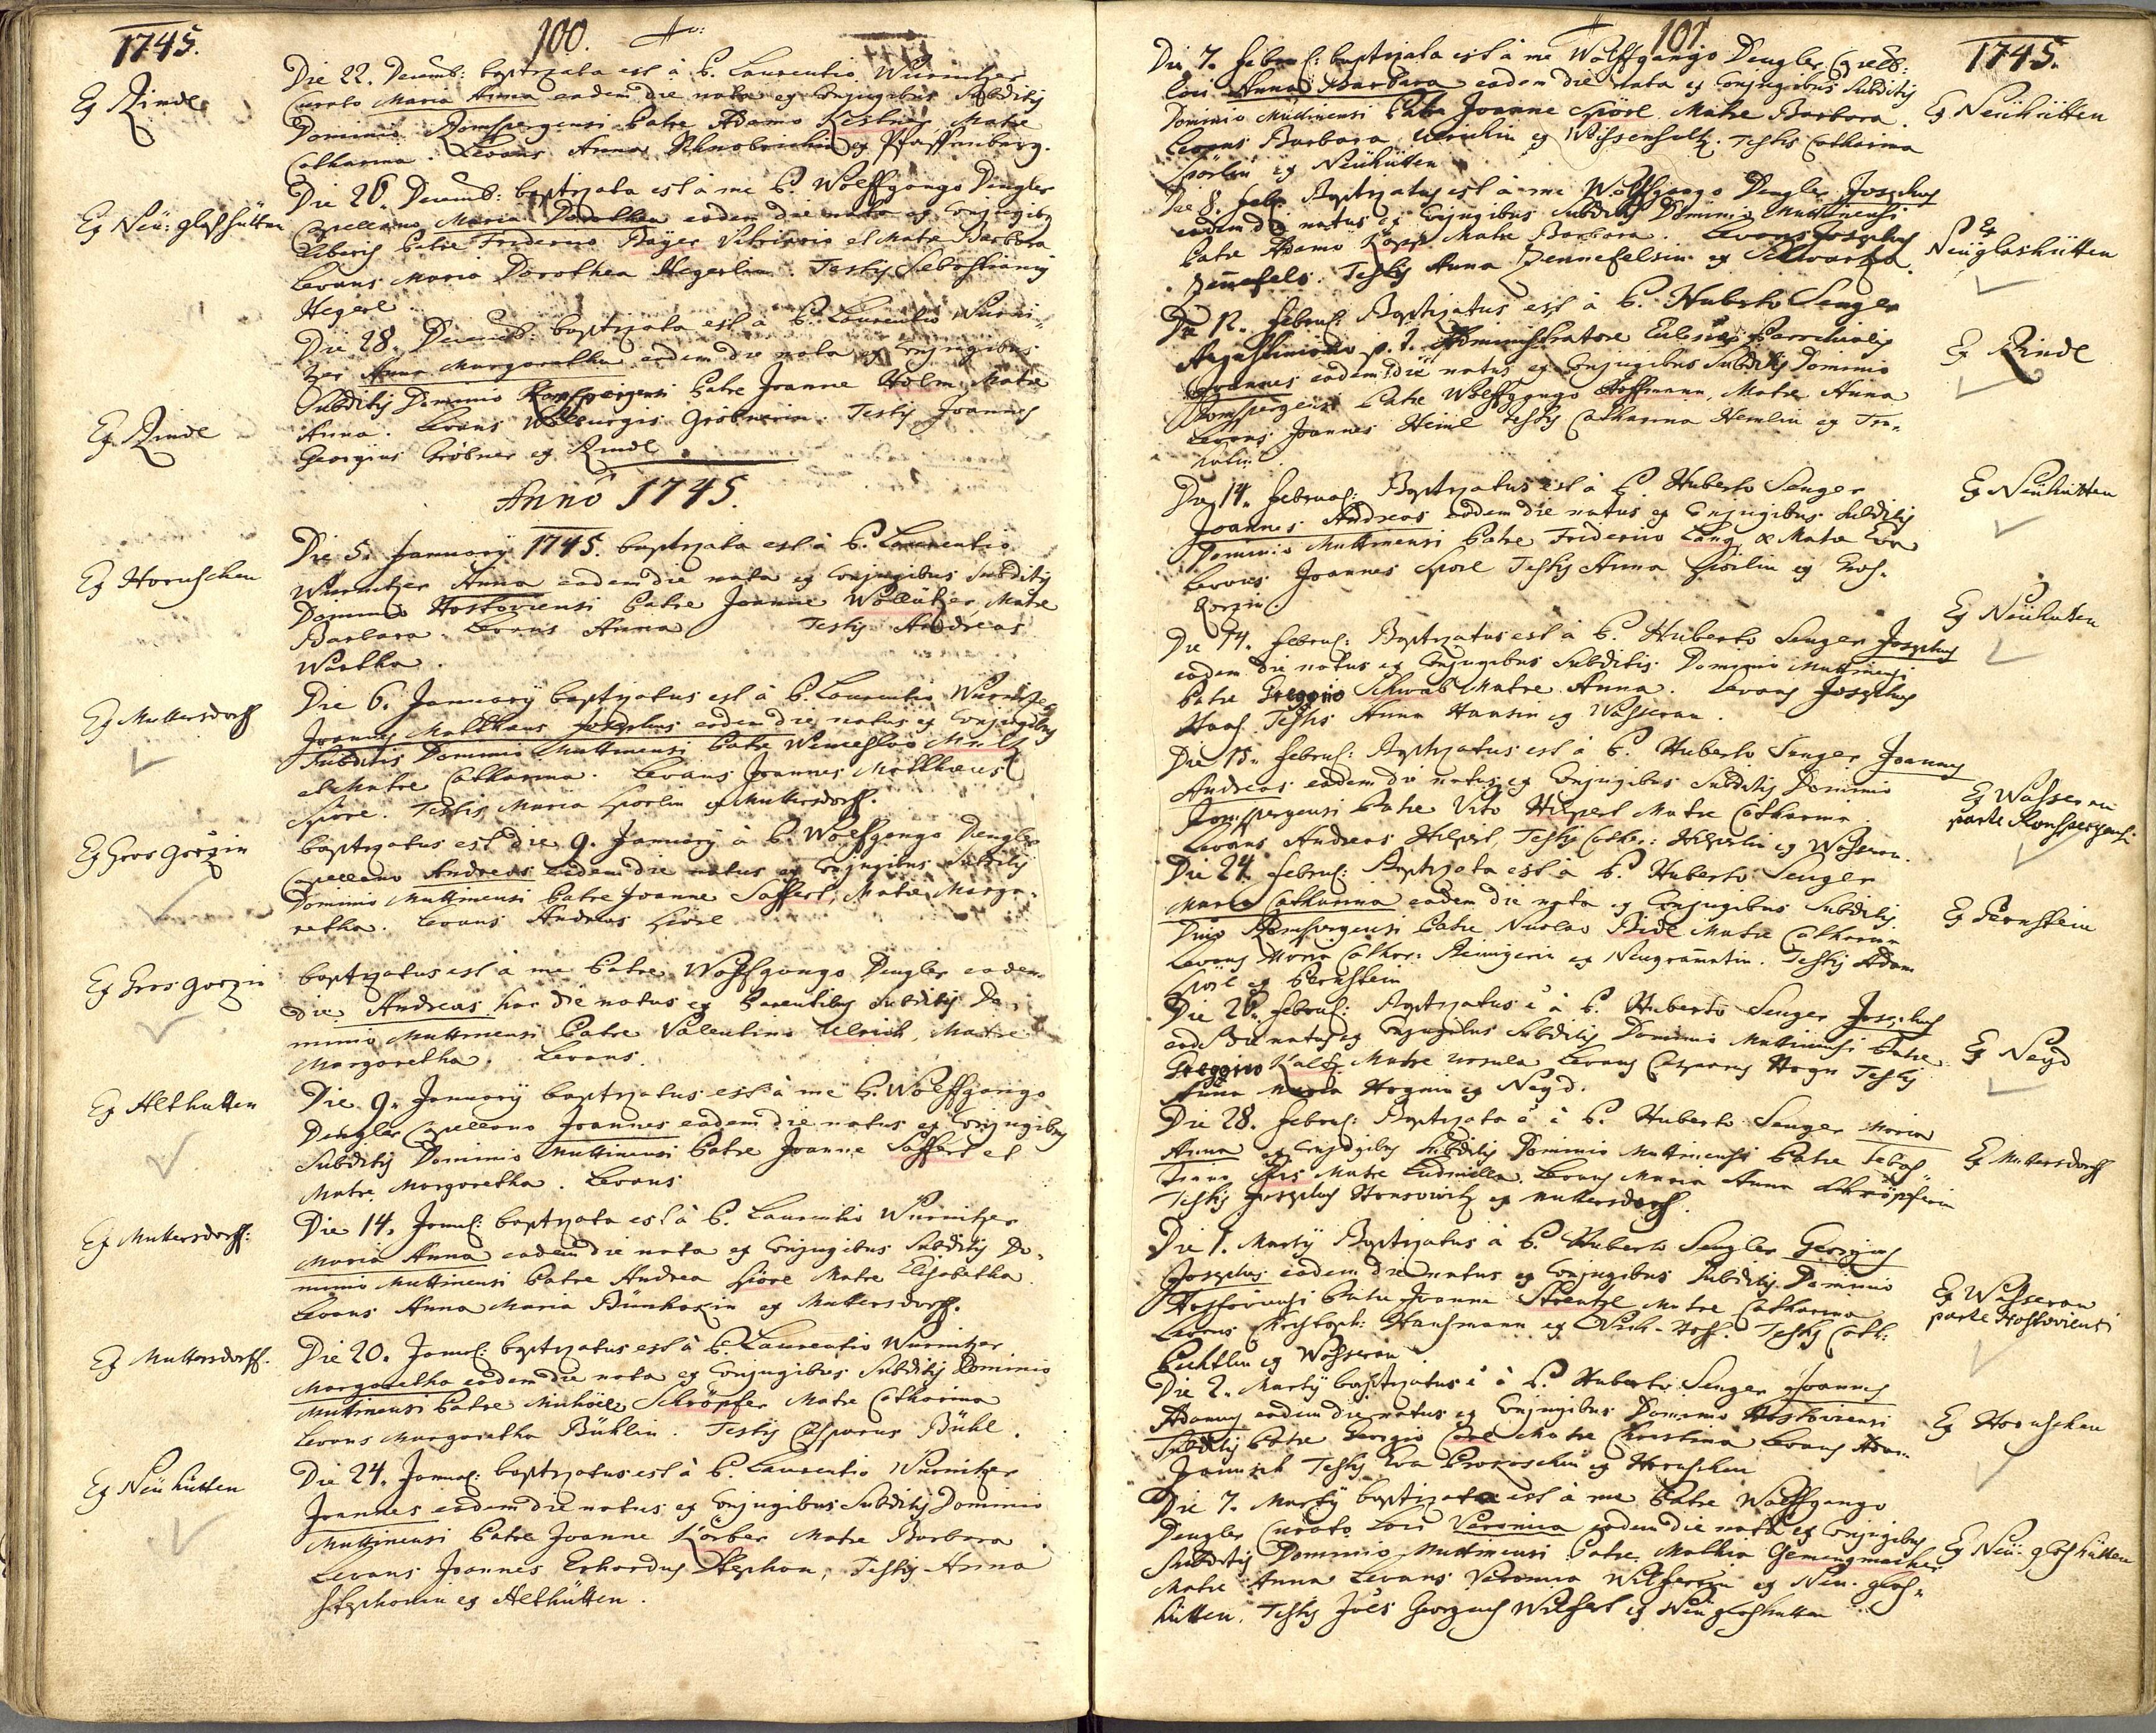 1745.
100.
Ex Rindl
Die 22. Decemb: baptizata est à P. Laurentio Wurnitzer
Curato Maria Anna eadem die nata ex Conjugibus Subditis
Dominio Ronspergensi Patre Adamo Kistner, Matre
Catharina. Levans Anna ex Pfaffenberg.
Ex Neü: glaßhütten
Die 26. Decemb: baptizata est à me P. Wolffgango Dengler
Capellano Maria Dorothea eadem die nata ex Conjugibus
Liberis Patre Friderico Bayer Vitriario et Matre Barbara
Levans Maria Dorothea Hegerlin. Testis Sebastianus
Hegerl.
Ex Rindl
Die 28. Decemb: baptizata est à P. Laurentio Wurni-
tzer Anna Margaretha eadem die nata ex Conjugibus
Subditis Dominio Ronspergensi Patre Joanne Holm, Matre
Anna. Levans Walburgis Gröbnerin. Testis Joannes
Georgius Gröbner ex Rindl.
Anno 1745.
Ex Horuschen
Die 5. January 1745. baptizata est à P. Laurentio
Wurnitzer Anna eadem die nata ex Conjugibus Subditis
Dominio Hostoviensi Patre Joanne Wolletzer, Matre
Barbara. Levans Anna Testis Andreas
Wartha.
Ex Muttersdorff
Die 6. January baptizatus est à P. Laurentio Wurnitzer
Joannes Matthaeus Josephus eadem die natus ex Conjugibus
Subditis Dominio Muttinensi Patre Wenceslao
et Matre Catharina. Levans Joannes Matthaeus
Spörl. Testis Maria Spörlin ex Muttersdorff.
Ex Gros gorzin
baptizatus est die 9. January à P. Wolfgango Dengler
Capellano Andreas eadem die natus ex Conjugibus Subditis
Dominio Muttinensi Patre Joanne Saffert, Matre Marga-
retha. Levans Andreas Spörl
Ex Gros gorzin
baptizatus est à me Patre Wolfgango Dengler eadem
die Andreas hac die natus ex Parentibus subditis Do-
minio Muttinensi Patre Valentino Ulrich, Matre
Margaretha. Levans
Ex Althutten
Die 9. January baptizatus est à me P. Wolffgango
Dengler Capellano Joannes eadem die natus ex Conjugibus
Subditis Dominio Muttinensi Patre Joanne Saffert et
Matre Margaretha. Levans
Ex Muttersdorff:
Die 14. Januar: baptizata est à P. Laurentio Wurnitzer
Maria Anna eadem die nata ex Conjugibus Subditis Do-
minio Muttinensi Patre Andrea Spörl Matre Elisabetha.
Levans Anna Maria ex Muttersdorff.
Ex Muttersdorff.
Die 20. Januar: baptizatus est à P. Laurentio Wurnitzer
Margaretha eadem die nata ex Conjugibus Subditis Dominio
Muttinensi Patre Michaele Schröpfer Matre Catharina
Levans Margaretha Bühlin. Testis Casparus Bühl.
Ex Neü hütten
Die 24. Januar: baptizatus est à P. Laurentio Wurnitzer
Joannes eadem die natus ex Conjugibus Subditis Dominio
Muttinensi Patre Joanne Körber Matre Barbara.
Levans Joannes Erhardus Stephan, Testis Anna
Stephanin ex Althütten.
101
1745.
Die 7. Februar: baptizata est à me Wolffgango Dengler
loci Anna Barbara eadem die nata ex Conjugibus Subditis
Dominio Muttinensi Patre Joanne Spörl Matre Barbara.
Levans Barbara Ulrichin ex Weissensultz. Testis Catharina
Spörlin ex Neühütten
Ex Neühütten
Die 8. Febr. Baptizatus est à me Wolffgango Dengler Josephus
eadem die natus ex Conjugibus Subditis Dominio Muttinensi
Patre Adamo Matre Barbara. Levans Josephus
Zennefels. Testis Anna Zennefelsin ex Schwarza.
Ex
Neüglashütten
Die 12. Februar: Baptizatus est à P. Huberto Senger
Augustiniano p. t. Administratore Ecclesiae Parochialis
Joannes eadem die natus ex Conjugibus Subditis Dominio
Ronspergensi Patre Wolffgango Hoffmann, Matre Anna
Levans Joannes Heinl testis Catharina Hemlin ex Tra-
Ex Rindl
Die 14. Februar: Baptizatus est à P. Huberto Senger
Joannes Andreas eadem die natus ex Conjugibus subditis
Dominio Muttinensi Patre Friderico Lang & Matre Eva
Levans Joannes Spörl Testis Anna Spörlin ex Gros-
gorzin.
Ex Neühütten
Die 14. Februar: Baptizatus est à P. Huberto Senger Josephus
eadem die natus ex Conjugibus Subditis Dominio Muttinensi
Patre Greggrio Schwab Matre Anna. Levans Josephus
Haas. Testis Anna Haasin ex Wasserau.
Ex Neühutten
Die 15. Februar: Baptizatus est à P. Huberto Senger Joannes
Andreas eadem die natus ex Conjugibus Subditis Dominio
Ronspergensi Patre Vito Hilpert Matre Catharina.
Levans Andreas Hilpert, Testis Cathar: Hilpertin ex Wasserau.
Ex Wasserau
parte Ronspergensi
Die 24. Februar: Baptizata est à P. Huberto Senger
Maria Catharina eadem die nata ex Conjugibus subditis
Dnio Ronspergensi Patre Nicolao Bidl Matre Catharina
Levans Maria Cathar: ex Neugramatin. Testis Adam
Spörl ex Bernstein
Ex Pernstein
Die 26. Februar: Baptizatus è à P. Huberto Senger Josephus
eadem die natus ex Conjugibus Subditis Dominio Muttinensi Patre
Greggrio Kaltz Matre Ursula Levans Casparus Hogn Testis
Anna Maria Hognin ex Neyd.
Ex Neyd
Die 28. Februar: Baptizata è à P. Huberto Senger Maria
Anna ex Conjugibus Subditis Dominio Muttinensi Patre Sebas-
tiano Matre Ludmilla Levans Maria Anna Schröpferin
Testis Josephus Honsowitz ex Muttersdorff.
Ex Muttersdorff
Die 1. Martij Baptizatus à P. Huberto Sengler Georgius
Josephus eadem die natus ex Conjugibus Subditis Dominio
Hostoviensi Patre Joanne Strentzl Matre Catharina
Levans Christoph: Hansmann ex Testis Cath:
Puchtlin ex Wasserau
Ex Wasserau
parte Hostoviensi
Die 2. Martij baptizatus è à P. Huberto Senger Joannes
Adamus eadem die natus ex Conjugibus Dominio Hostoviensi
Subditis Patre Georgio Matre Christina Levans Adam
Jannick Testis Eva ex Horuschen
Ex Horuschen
Die 7. Martij baptizata est à me Patre Wolffgango
Dengler Curato Loci Veronica eadem die nata ex Conjugibus
Subditis Dominio Muttinensi Patre Mathia Gemengmacher
Matre Anna Levans Veronica Wilfertin ex Neu-glas-
hütten. Testis Joës Georgius Wilfert ex Neü glashütten
Ex Neü-glashütten